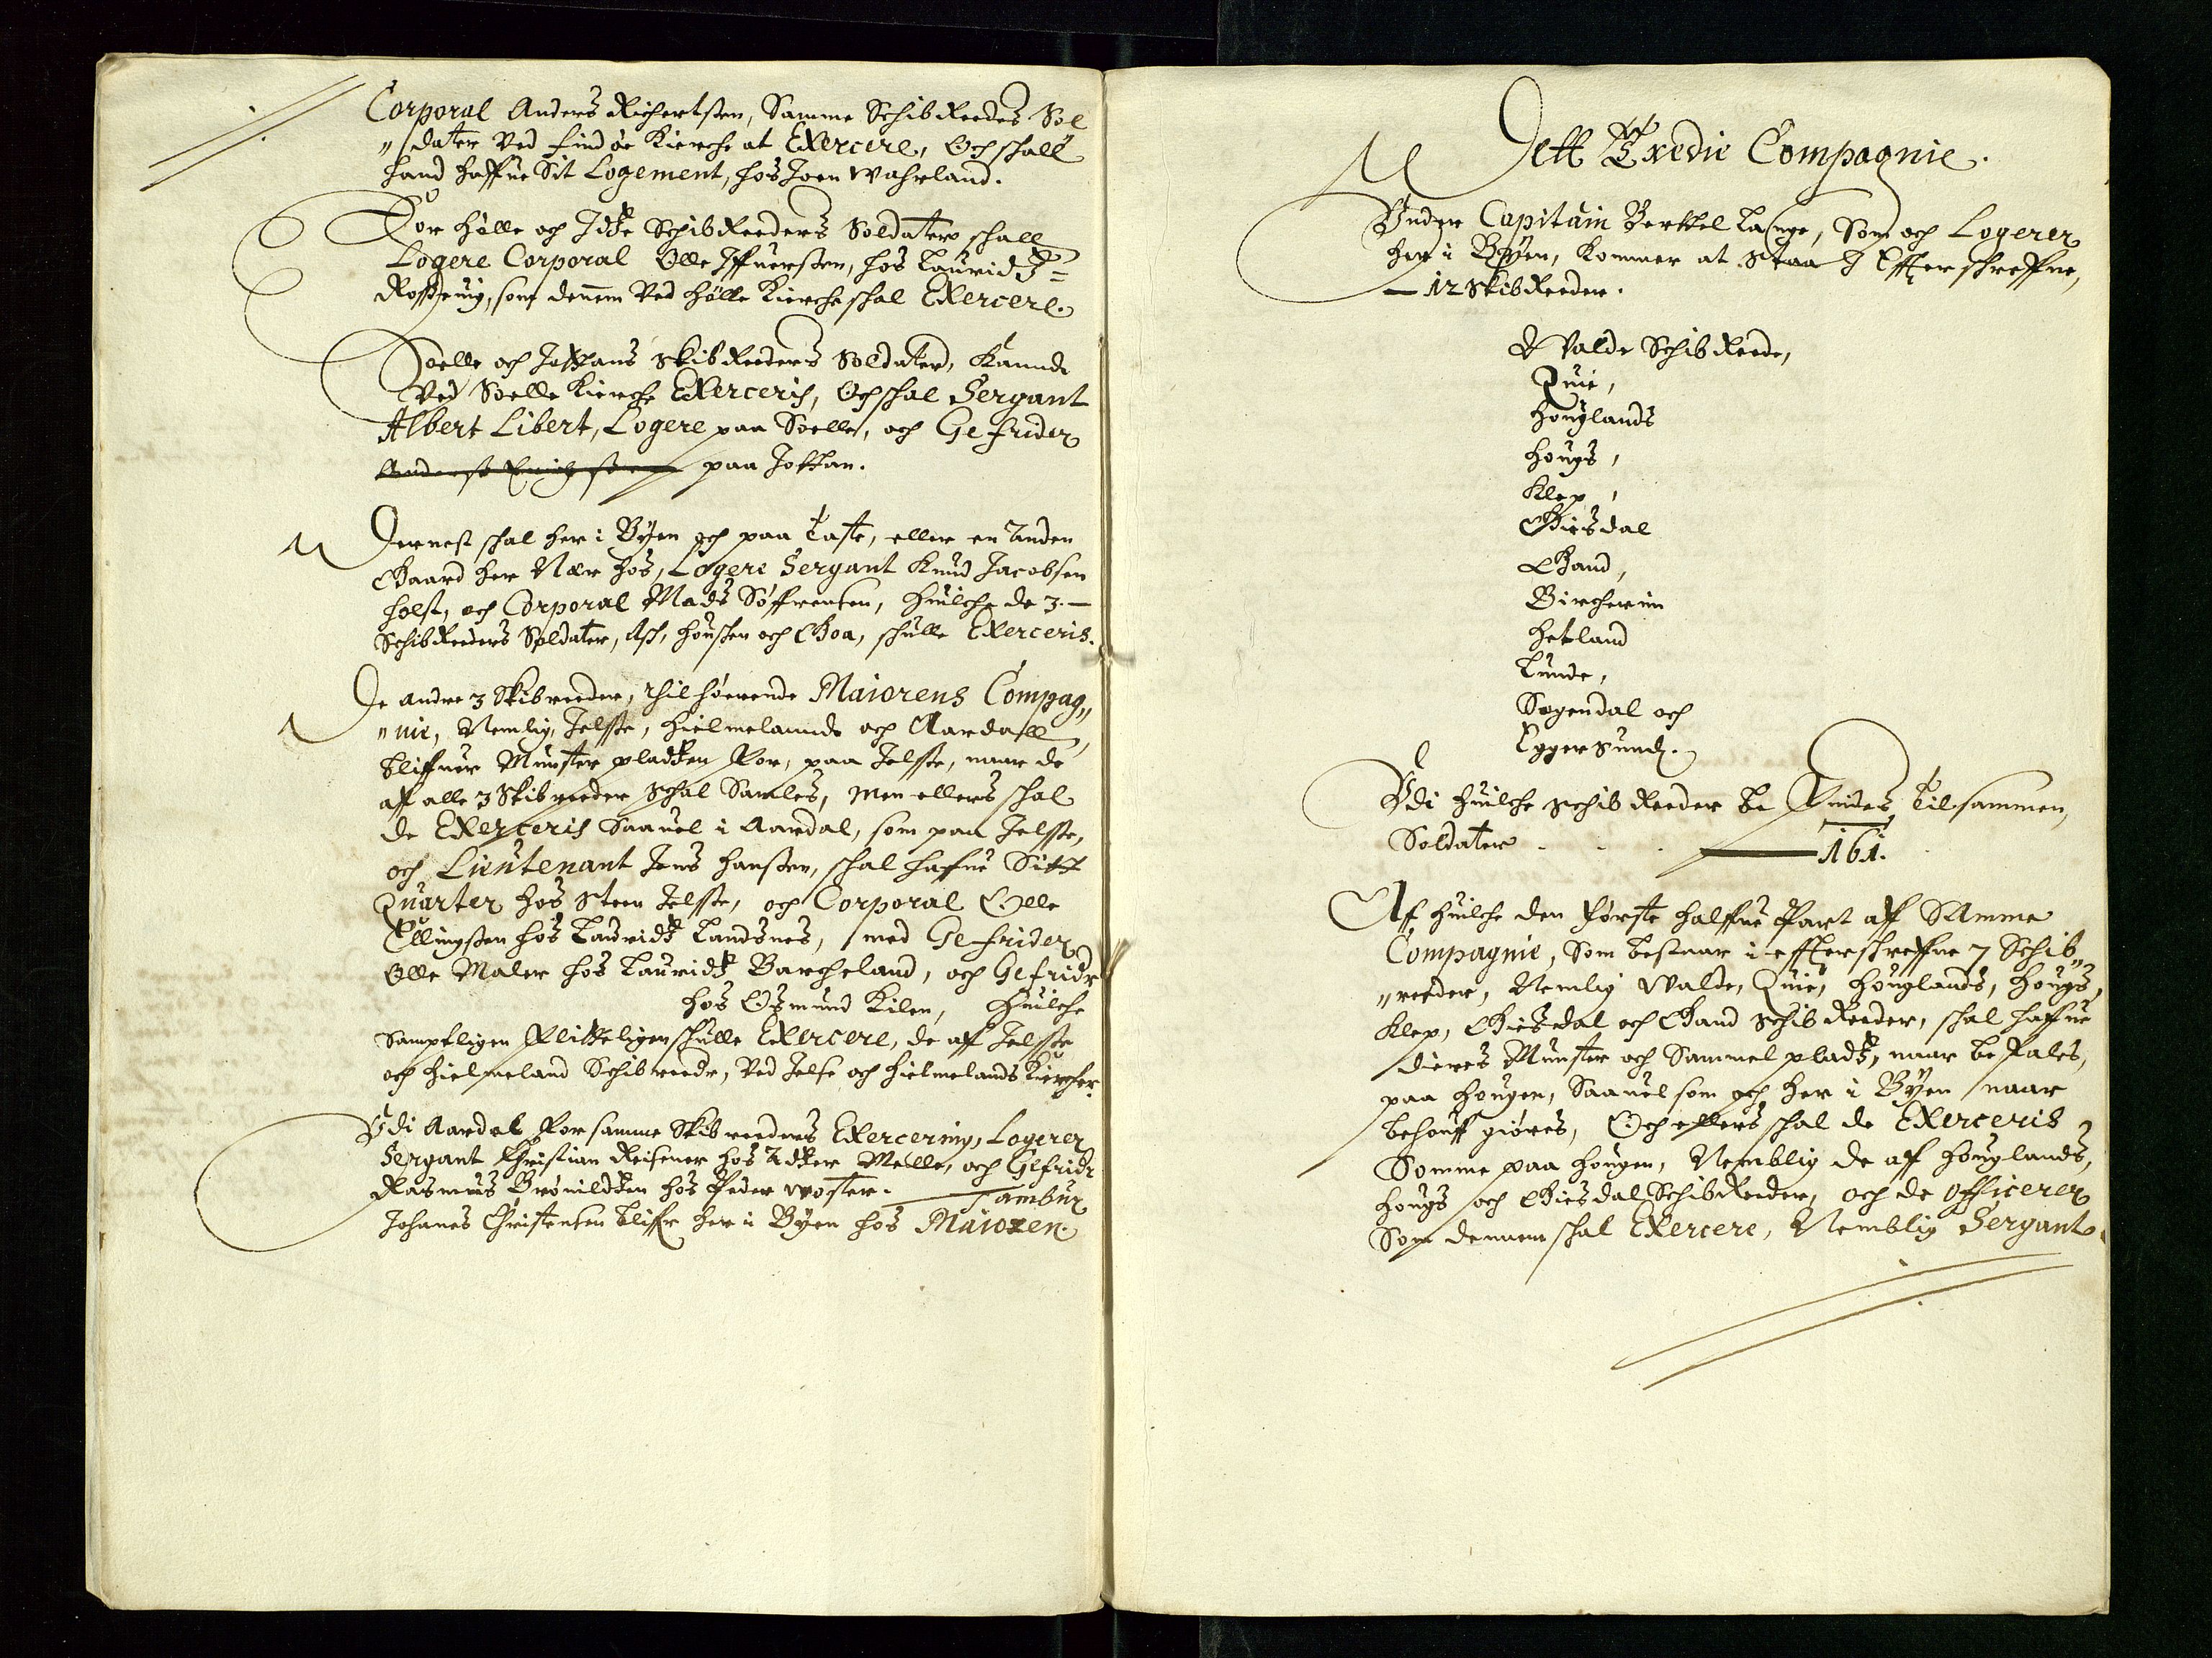 Corporal Anders Richertsen, Samme Schib Reedes Sol
"dater Ved Findøe Kierche at Exercere, Och schall
hand haffue Sit Logement, hos Joen Wahrland.
For Hølle och Idse Schib Reeders Soldater schall
Logere Corporal Olle Iffuersen, hos Lauridtz=
som dennem Ved Hølle Kierche schal Exercere.
Soelle och Jottans Skib Reeders Soldater, Kannde
Ved Soelle Kierche Exerceris, Och schal Sergant
Albert Libert, Logere paa Soelle, och Gefrider
paa Jottan.
Dernest schal her i Byen och paa Taste, eller en Anden
Gaard her Nær hos, Logere Sergant Knud Jacobsen
Holst, och Corporal Mads Søffrensen, Huilche de 3.
Schib Reeders Soldater, Ask, Housken och Goa, schulle Exerceris.
De andre 3 Skibreeder, thil høerende Maiorens Compag"
"nie, Nemlig, Jelsse, Hielmelannds och Aardall,
bliffuer Munster pladtzen For, paa Jelsse, naar de
aff alle 3 Skibreeder Schal Samles, Men ellers schal
de Exerceris Saauel i Aardal, som paa Jelsse,
och Lieutenant Jens Hansen, schal haffue Sitt
Quarter hos Steen Jelsse, och Corporal Olle
Ellingsen hos Lauridtz Landsnes, med Gefrider
Olle Maler hos Lauridtz Barcheland, och Gefridr
hos Osmund Kilen, Huilche
Samptligen Flitteligen schulle Exercere, de aff Jelsse
och Hielmeland Schibreedr, Ved Jelse och Hielmelands Kiercher.
Udi Aardal For samme Skibreeders Exercering, Logerer
Sergant Christian Reisener hos Adser Melle, och Gefridr
Rasmus hos Peder Woster. Tambur
Johanes Christensen bliffr her i Byen hos Maioren.
Dett Tredie Compagnie.
Under Capitain Berttel Lange, Som och Logerer
her i Byen, Kommer at Staa I Effterschreffne,
12 Skib Reeder.
Walde Schib Reede,
Quie,
Houglands
Hougs,
Klep,
Giesdal
Gand,
Bircherim
Hetland
Lunde,
Sogendal och
Eggersund.
Udi Huilche Schib Reeder be Findes Tilsammen,
Soldater - - - 161.
Aff Huilche den Første Halffue Part aff Samme
Compagnie, Som bestaar i effterschreffne 7 Schib"
"reeder, Nemlig Walde, Quie, Houglands, Hougs,
Klep, Giesdal och Gand Schib Reeder, schal haffue
dieres Munster och Sammel pladtz, naar befales,
paa Hougen, Saauelsom och her i Byen naar
behouff giøres, Och ellers schal de Exerceris
Somme paa Hougen, Nemblig de aff Houglands,
Hougs och Giesdal Schib Reeder, och de Officerer
Som dennem schal Exercere, Nemblig Sergant